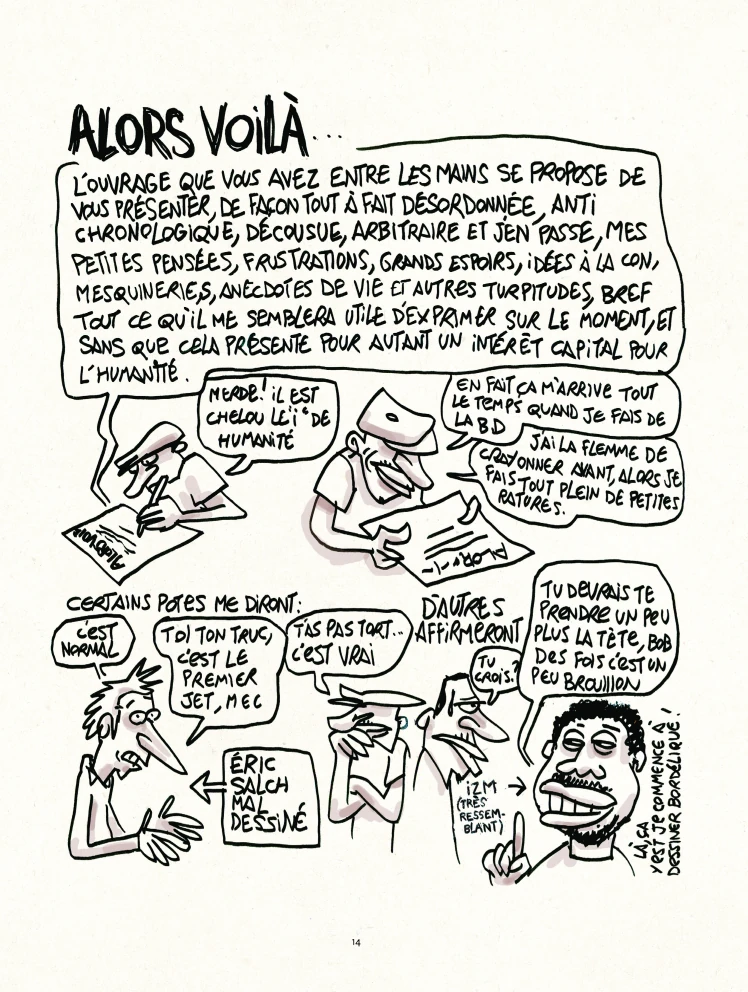 ALORS VOILÀ...
L'OUVRAGE QUE VOUS AVEZ ENTRE LES MAINS SE PROPOSE DE
VOUS PRÉSENTER, DE FAÇON TOUT À FAIT DÉSORDONNÉE, ANTI
CHRONOLOGIQUE, DÉCOUSUE, ARBITRAIRE ET J'EN PASSE, MES
PETITES PENSÉES, FRUSTRATIONS, GRANDS ESPOIRS, IDÉES À LA CON,
MESQUINERIES, ANECDOTES DE VIE ET AUTRES TURPITUDES, BREF
TOUT CE QU'IL ME SEMBLERA UTILE D'EXPRIMER SUR LE MOMENT, ET
SANS QUE CELA PRÉSENTE POUR AUTANT UN INTÉRÊT CAPITAL POUR
L'HUMANITÉ.
MERDE! IL EST
CHELOU LE "i" DE
HUMANITÉ
EN FAIT ÇA M'ARRIVE TOUT
LE TEMPS QUAND JE FAIS DE
LA BD
J'AI LA FLEMME DE
CRAYONNER AVANT, ALORS JE
FAIS TOUT PLEIN DE PETITES
RATURES.
ALORS VOILÀ
ALORS
CERTAINS POTES ME DIRONT:
C'EST
NORMAL
TOI TON TRUC,
C'EST LE
PREMIER
JET, MEC
ÉRIC
SALCH
MAL
DESSINÉ
T'AS PAS TORT...
C'EST VRAI
D'AUTRES
AFFIRMERONT
TU
CROIS?
TU DEVRAIS TE
PRENDRE UN PEU
PLUS LA TÊTE, BOB
DES FOIS C'EST UN
PEU BROUILLON
IZM
(TRÈS
RESSEM-
BLANT)
LÀ, ÇA
Y'EST JE COMMENCE À
DESSINER BORDÉLIQUE!
14